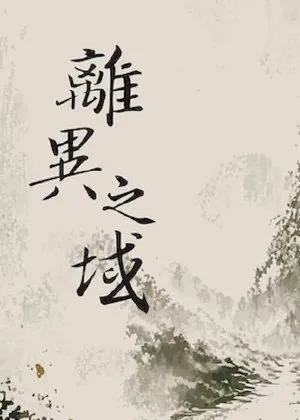 離異之域